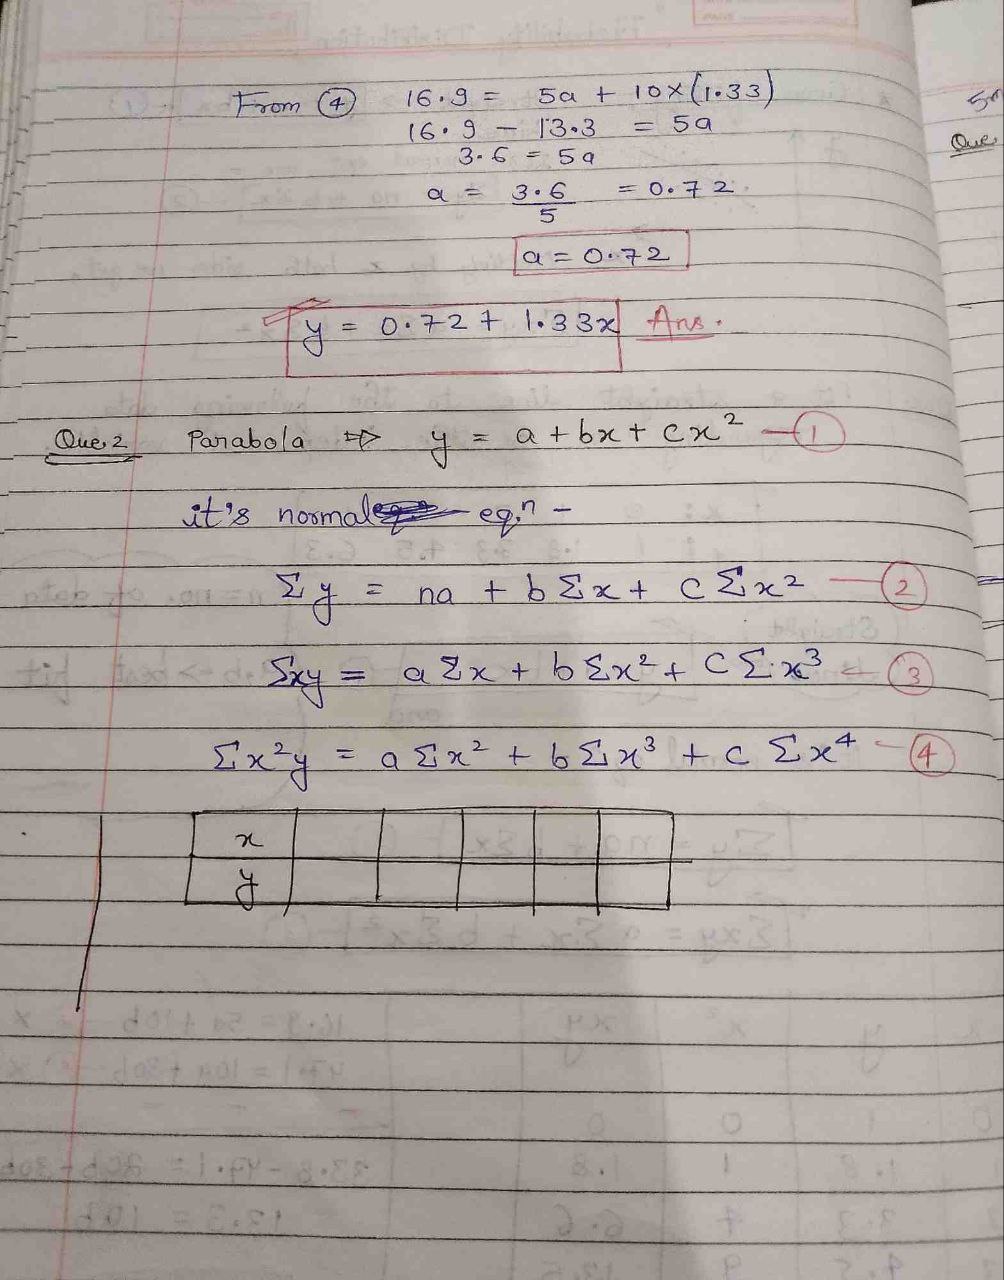 From ④ 16.9 = 5a + 10x(1.33)
16.9 - 13.3 = 5a
3.6 = 5a
a = 3.6/5 = 0.72
a = 0.72
y = 0.72 + 1.33x Ans.
Que. 2 Parabola ⇒ y = a + bx + cx² — ①
it's normal eq.n -
Σy = na + bΣx + cΣx² — ②
Σxy = aΣx + bΣx² + CΣx³ — ③
Σx²y = aΣx² + bΣx³ + cΣx⁴ — ④
x
y
Que.